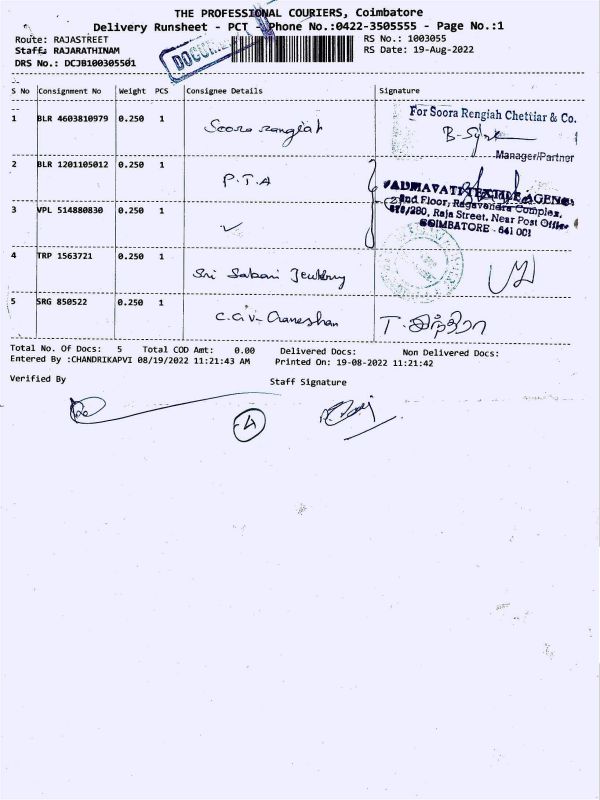 THE PROFESSIONAL COURIERS, Coimbatore
Delivery Runsheet - PCT - Phone No.:0422-3505555 - Page No.:1
Route: RAJASTREET
RS No.: 1003055
Staff: RAJARATHINAM
RS Date: 19-Aug-2022
DRS No.: DCJB100305501
S No Consignment No Weight PCS Consignee Details Signature
1 BLR 4603810979 0.250 1 Soora rangiah
For Soora Rengiah Chettiar & Co.
Manager/Partner
2 BLR 1201105012 0.250 1 P.T.A
PADMAVATI TEXTILE AGENCY
2nd Floor, Ragavendra Complex,
Raja Street, Near Post Office
COIMBATORE - 641 001
3 VPL 514880830 0.250 1
4 TRP 1563721 0.250 1 Sri Sabari Jewllery
5 SRG 850522 0.250 1 C.G.V-
Total No. Of Docs: 5 Total COD Amt: 0.00 Delivered Docs: Non Delivered Docs:
Entered By :CHANDRIKAPVI 08/19/2022 11:21:43 AM Printed On: 19-08-2022 11:21:42
Verified By
Staff Signature